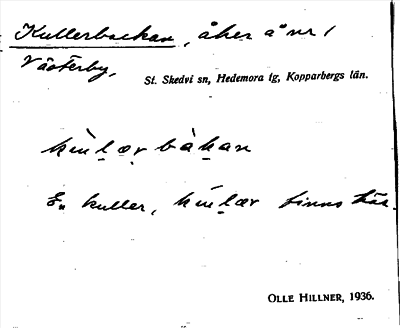 Kullerbackan, åker å nr 1
Västerby,
St. Skedvi sn, Hedemora tg, Kopparbergs län.
kùḷær bàkan
En kuller, kúḷær finns här.
OLLE HILLNER, 1936.